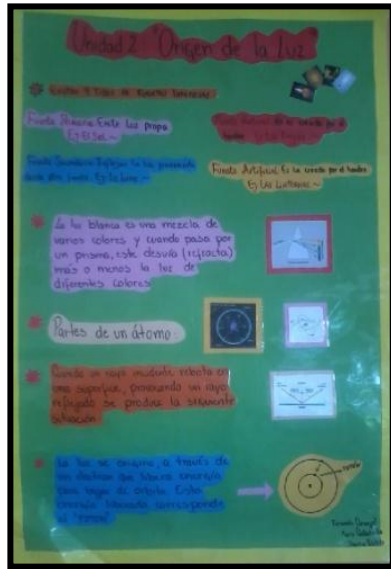 Unidad 2 "Origen de la Luz"
Existen 4 tipos de Fuentes
Fuente Primaria Emite luz propia
Ej: El Sol ~
Fuente
Fuente Secundaria Reflejan la luz
desde otra fuente. Ej: La Luna ~
Fuente Artificial Es la creada por el hombre
Ej: Las Linternas ~
La luz blanca es una mezcla de
varios colores y cuando pasa por
un prisma, este desvía (refracta)
más o menos la luz de
diferentes colores
Partes de un átomo
Cuando un rayo incidente rebota en
una superficie, provocando un rayo
reflejado se produce la siguiente
situación
La luz se origina, a través de
un electron que libera energía
para bajar de orbita. Esta
energía liberada corresponde
al "FOTON"